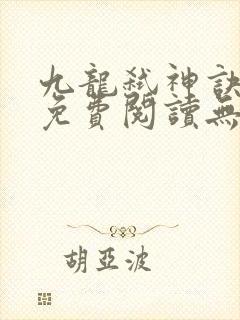 九龍弒神訣
免費閱讀無
胡亞波